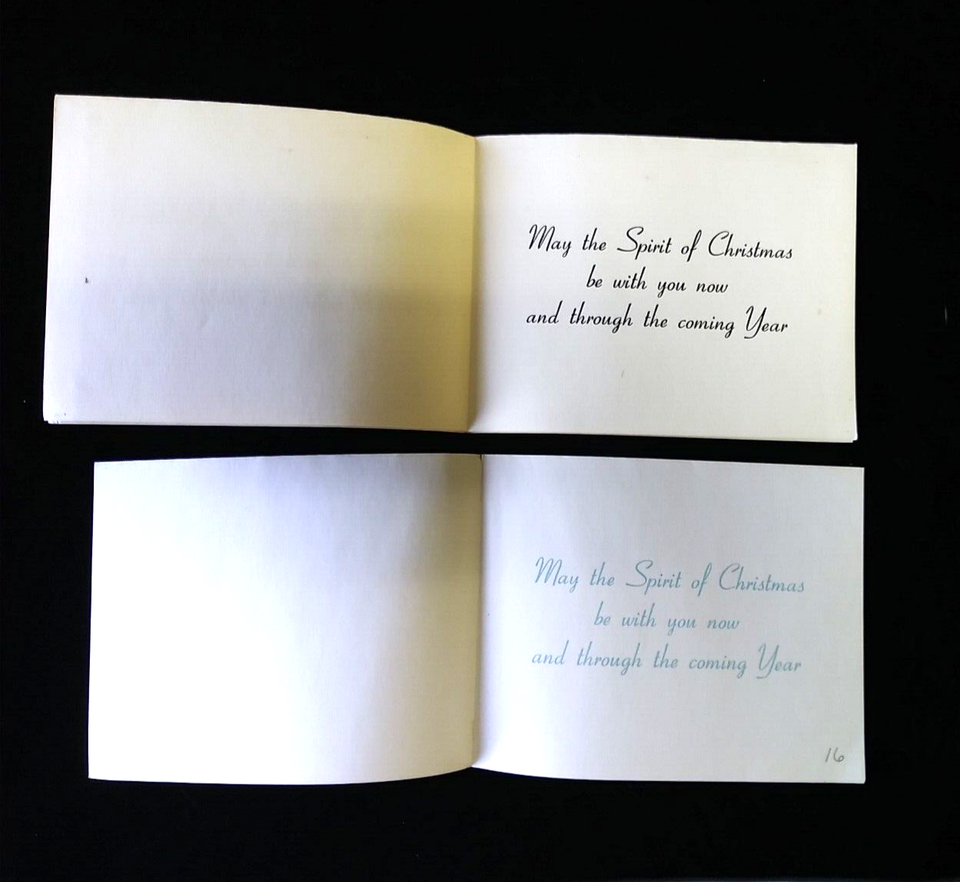 May the Spirit of Christmas
be with you now
and through the coming Year
May the Spirit of Christmas
be with you now
and through the coming Year
16